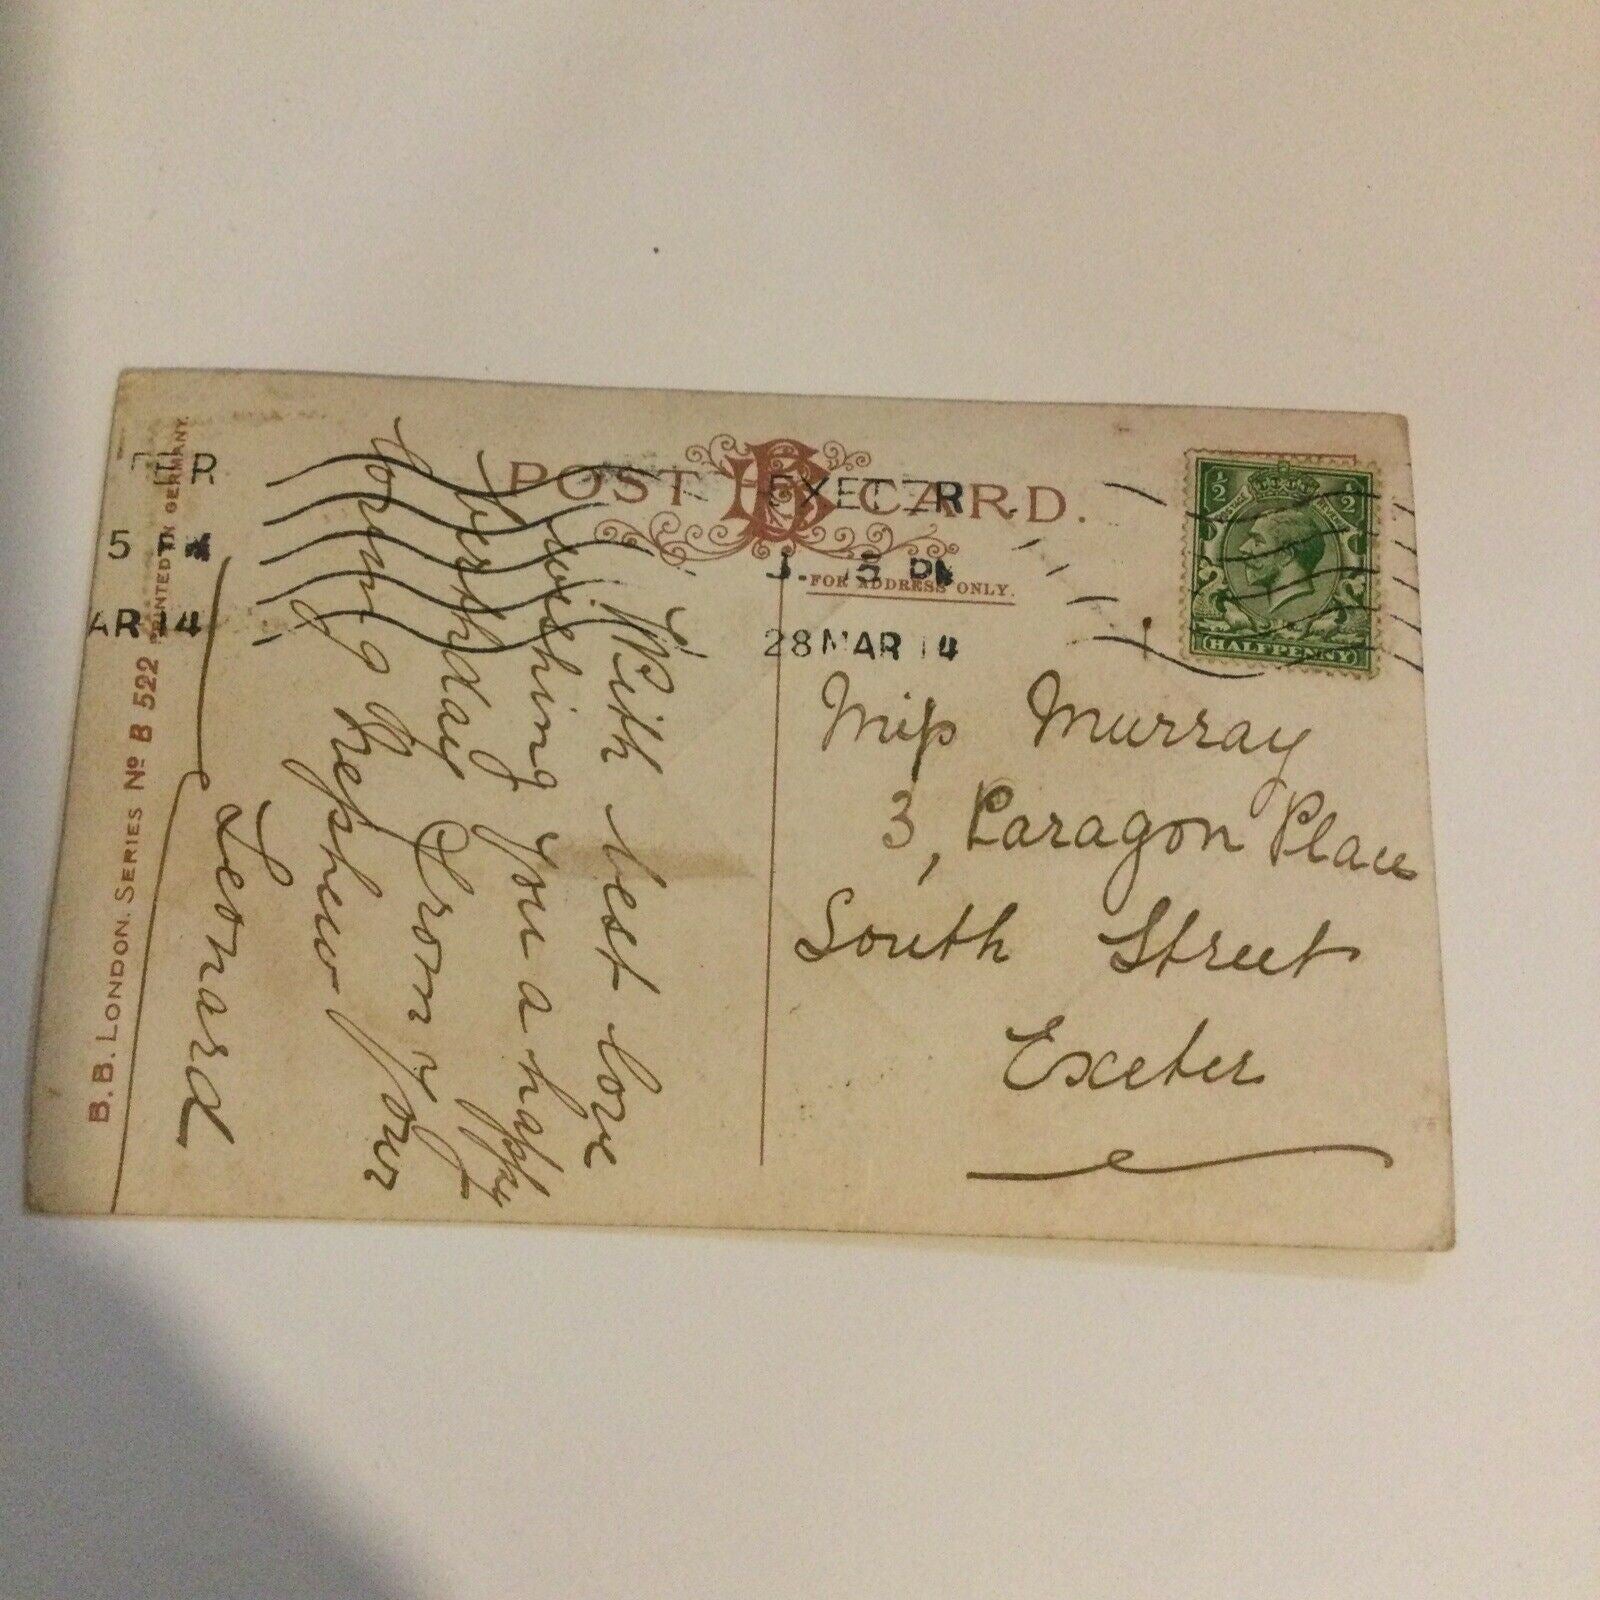 POST CARD.
FOR ADDRESS ONLY.
EXETER
15 PM
28 MAR 14
½ ½
HALFPENNY
Miss Murray
3, Paragon Place
South Street
Exeter
With best love
wishing you a happy
birthday from your
loving Nephew
Leonard
5 PM
AR 14
PRINTED IN GERMANY.
B. B. LONDON. SERIES Nº B 522